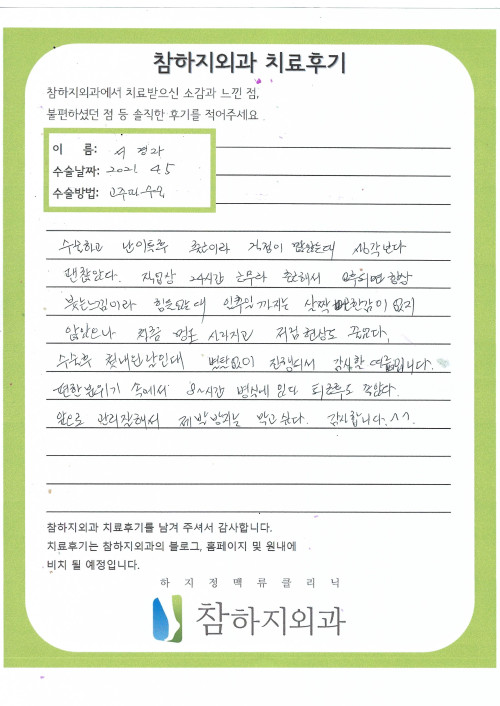 참하지외과 치료후기
참하지외과에서 치료받으신 소감과 느낀 점,
불편하셨던 점 등 솔직한 후기를 적어주세요
이 름: 서 경라
수술날짜: 2021 4.5
수술방법: 고주파
수술하고 걱정이 많았는데 생각보다
괜찮았다. 직업상 24시간 근무와 오후되면 항상
붓는느낌이라 힘들었는데 살짝 불편한감이 없지
않았으나 지금 멍도 사라지고 저림 현상도 꼽았다.
수술후 첫내원날인데 별탈없이 진행되서 감사한 마음입니다.
편한분위기 속에서 시간 병실에 있다 퇴원후도 좋았다.
앞으로 관리잘해서 재발방지는 막고싶다. 감사합니다.^^.
참하지외과 치료후기를 남겨 주셔서 감사합니다.
치료후기는 참하지외과의 블로그, 홈페이지 및 원내에
비치 될 예정입니다.
하지정맥류클리닉
참하지외과